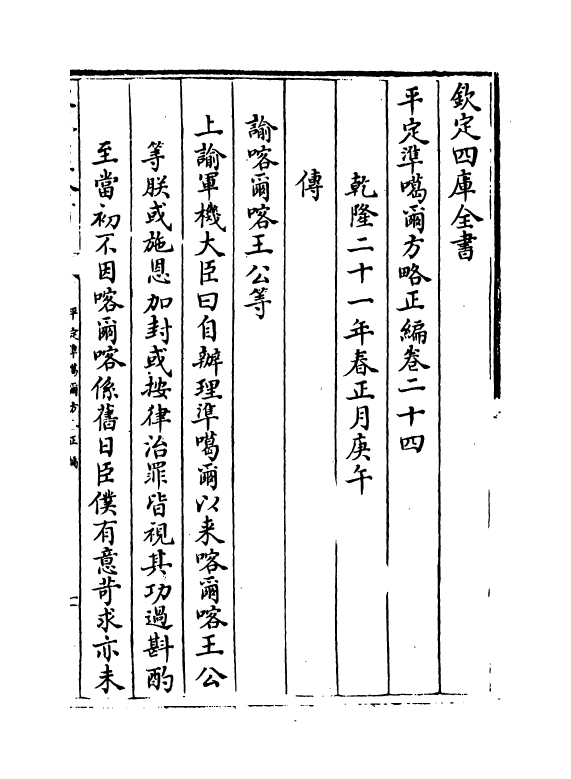 欽定四庫全書
平定準噶爾方略正編卷二十四
乾隆二十一年春正月庚午
傳
諭喀爾喀王公等
上諭軍機大臣曰自辦理準噶爾以來喀爾喀王公
等朕或施恩加封或按律治罪皆視其功過斟酌
至當初不因喀爾喀係舊日臣僕有意苛求亦未
平定準噶爾方 正編